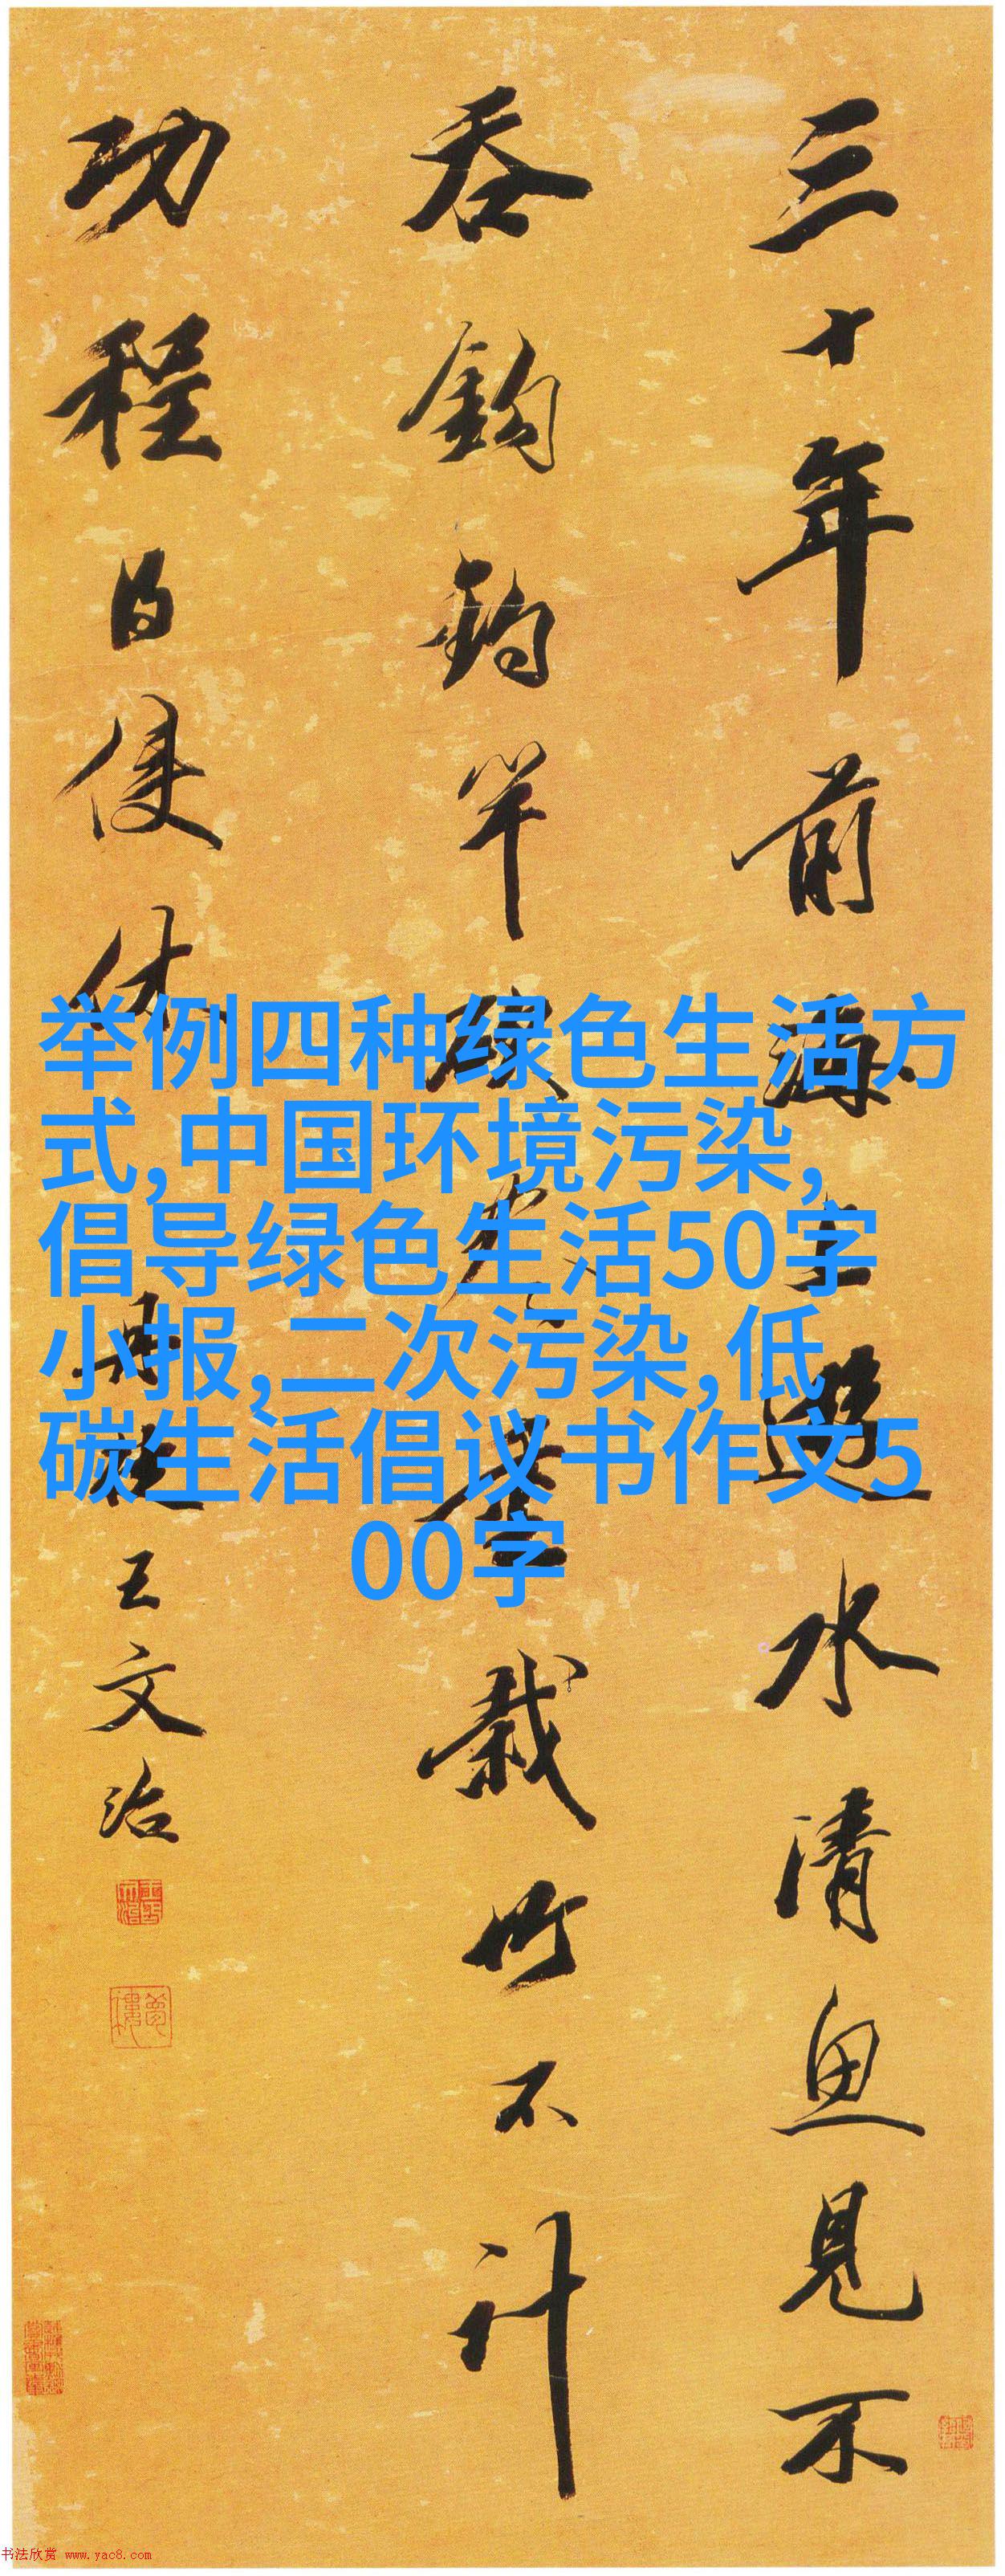 三十年前海上遊水清魚見不
吞鈎釣竿斫盡重栽竹不計
功程得便休
王文治
举例四种绿色生活方
式,中国环境污染,
倡导绿色生活50字
小报,二次污染,低
碳生活倡议书作文5
00字
书法欣赏 www.yac8.com